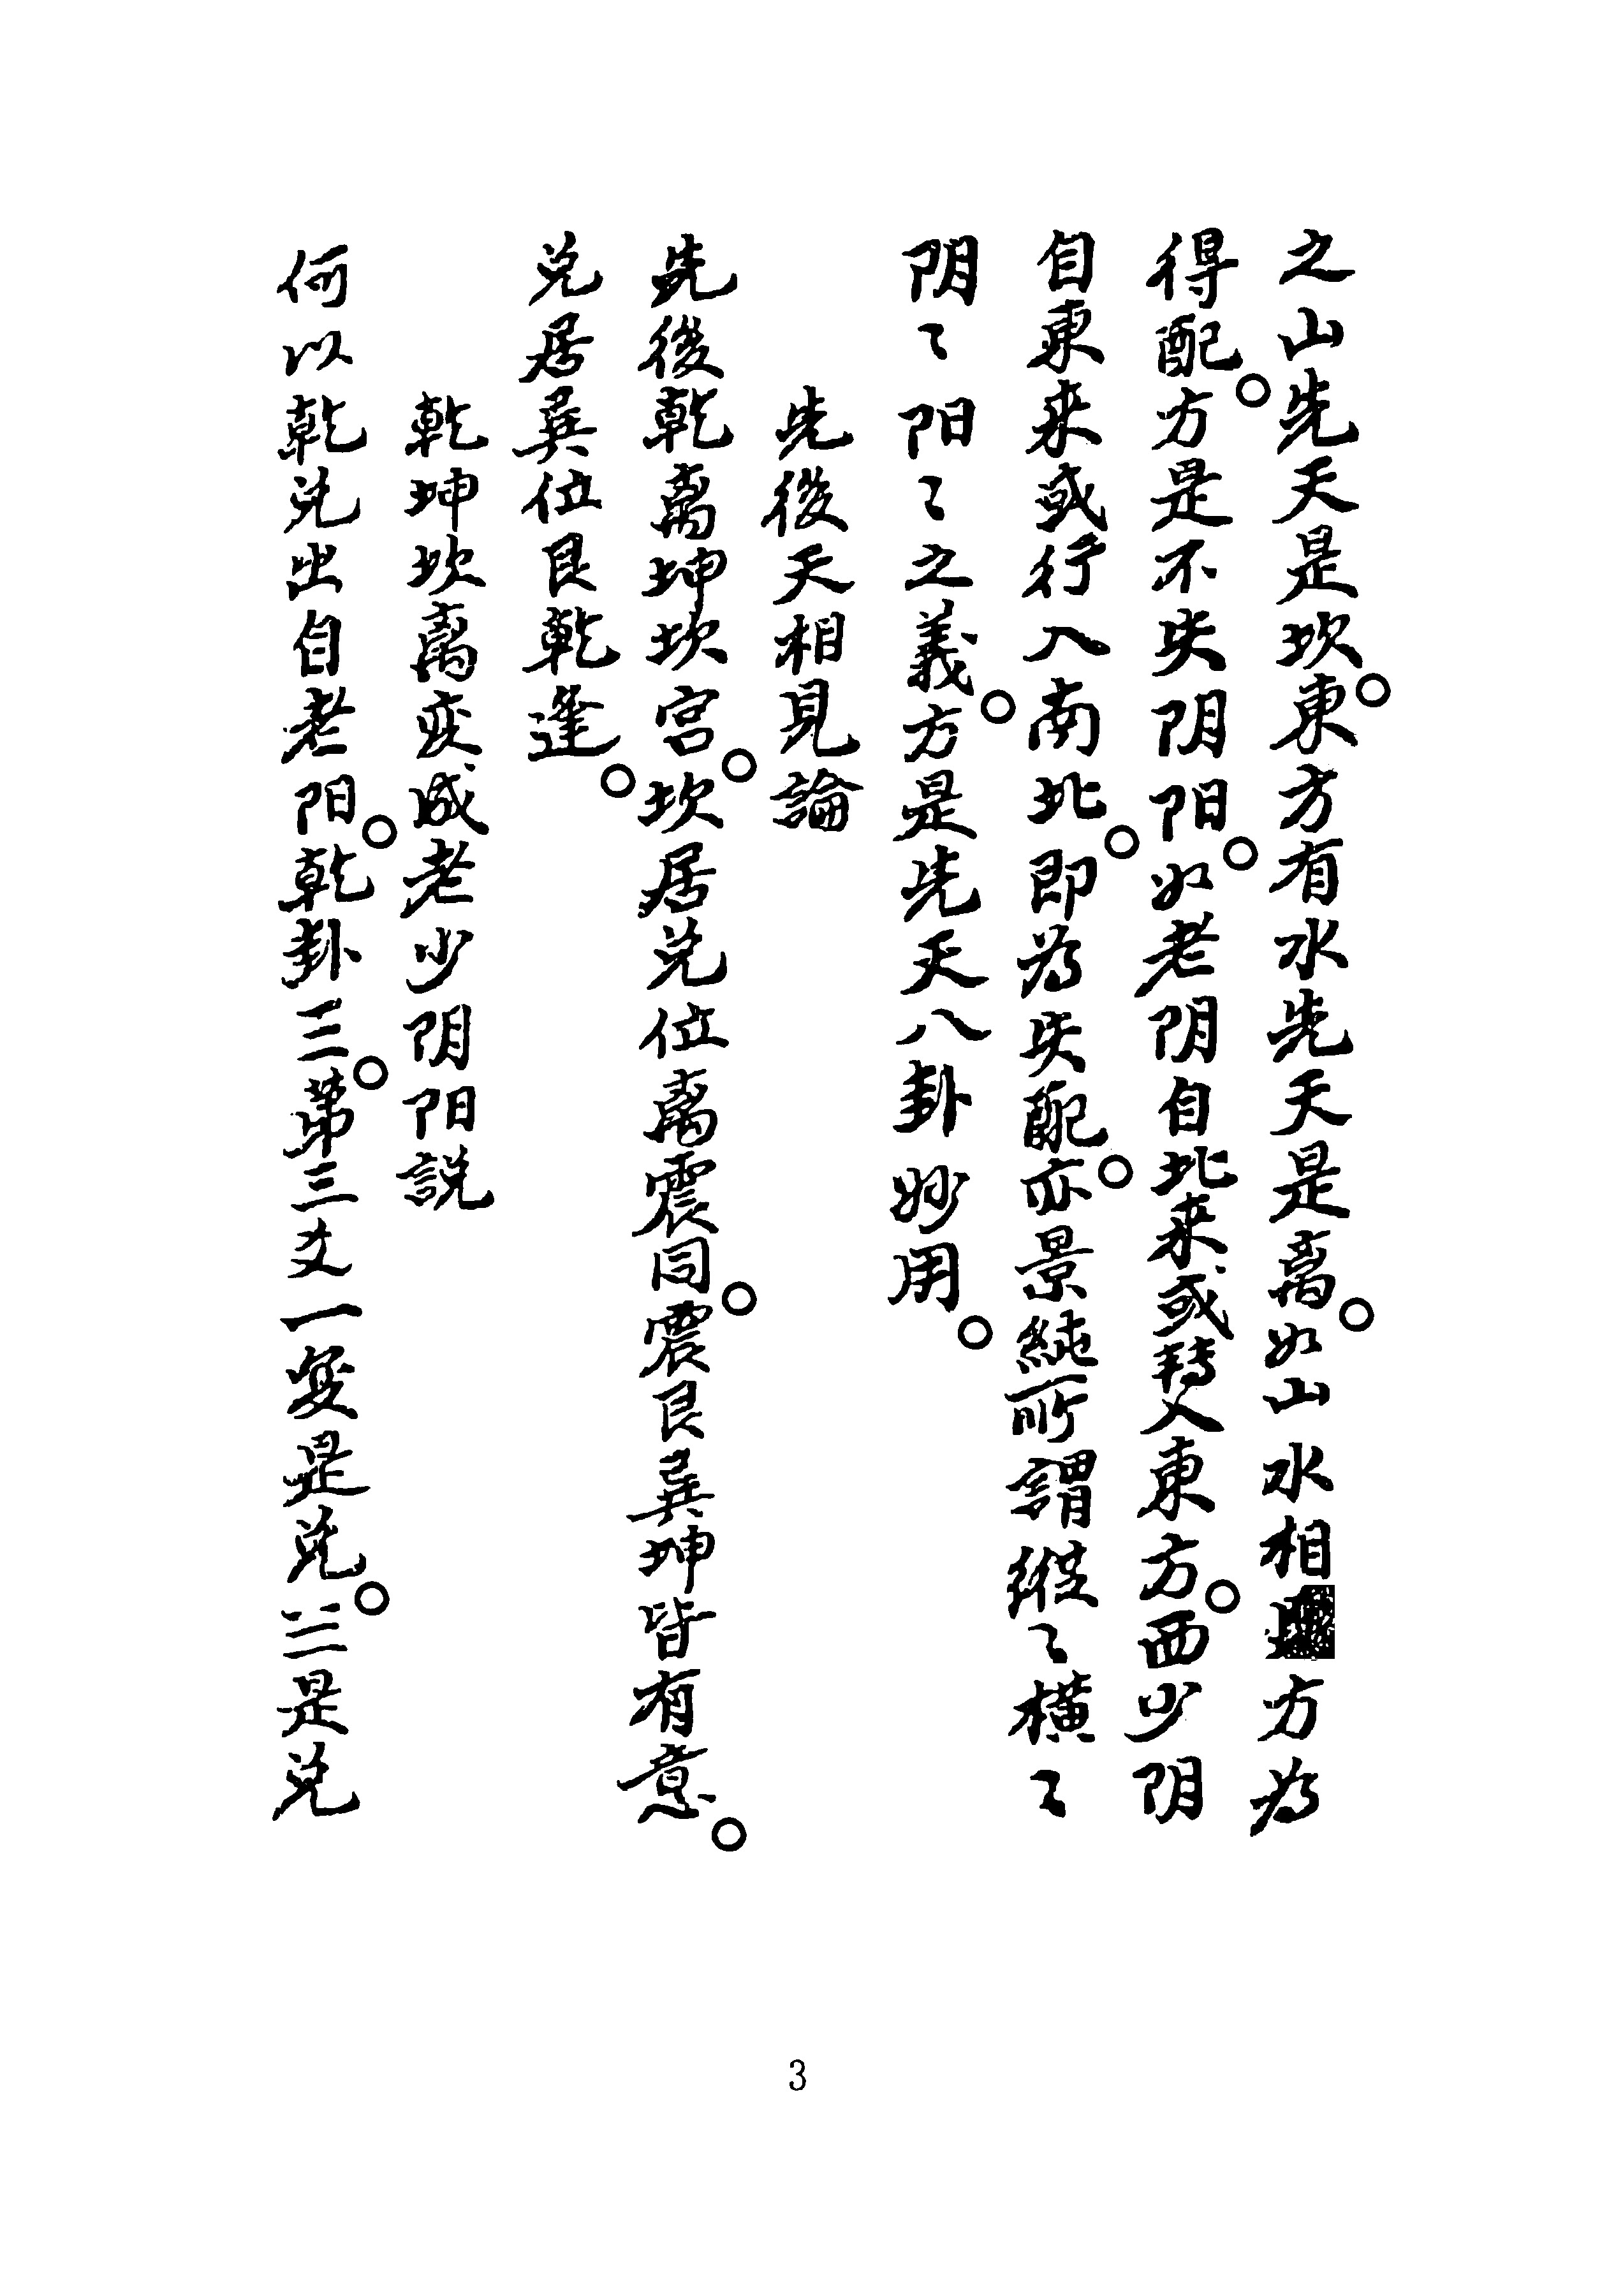 之山先天是坎。東方有水先天是离。如山水相方為
得配。方是不失阴阳。如老阴自北来或转入東方。西少阴
自東来或行入南北。即為失配。亦景純所謂縱〻橫〻
阴〻阳〻之義。方是先天八卦妙用。
先後天相見論
先後乾离坤坎宮。坎居兑位离震同。震艮巽坤皆有意。
兑居巽位艮乾逢。
乾坤坎离变成老少阴阳説
何以乾兑出自老阳。乾卦三。第三爻一变是兑。三是兑
3